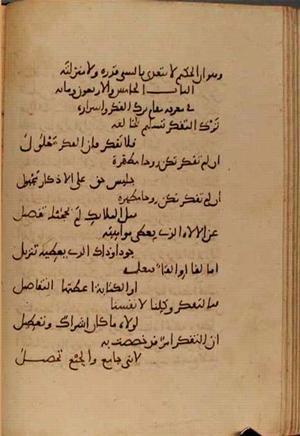 وسوال الحكيم لا يتعدى بالشي قدره ولا منزلته
الباب الخامس والاربعون ومايه
في معرفه مقام ترك الفكر واسراره
ترك التفكر تسليم لخالقه
فلا تفكر فان الفكر معلول
ان لم تفكر تكن روحا مطهرة
جليس حق على الاذكار مجبول
ان لم تفكر تكن روحا مطهره
مثل الملايك لم تفصيل
عن الاله الذي يعطي مواهبه
جودا وذاك الذي يعطيه تنزيل
اما لقا او القا
او الكتابة اعطتها التفاصيل
التفكر وكلنا لانفسنا
لولاه ما كان اشراك وتعطيل
ان التفكر امر خصصت به
لانني جامع والجمع تحصيل